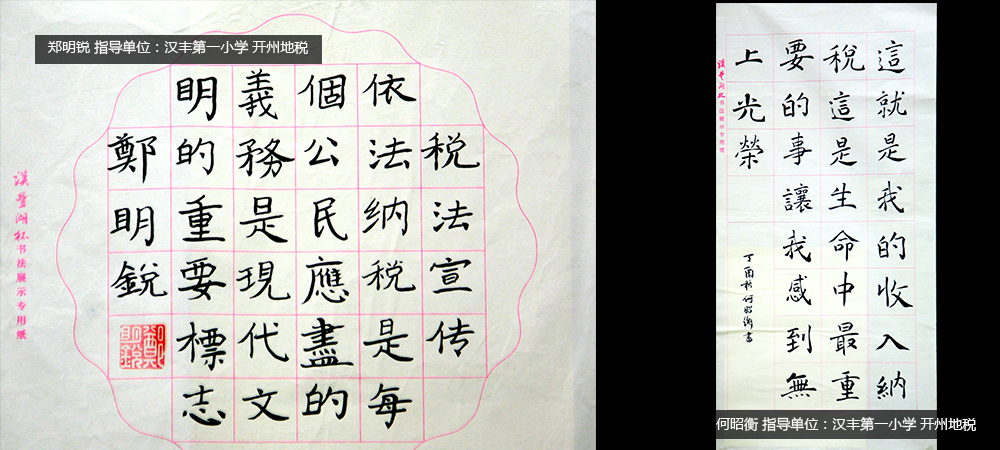 郑明锐 指导单位：汉丰第一小学 开州地税
税法宣传
依法纳税是每
個公民應盡的
義務是現代文
明的重要標志
鄭明銳
鄭明銳
漢豐湖杯书法展示专用纸
這就是我的收入納
税這是生命中最重
要的事讓我感到無
上光榮
丁酉秋何昭衡書
漢豐湖杯书法展示专用纸
何昭衡 指导单位：汉丰第一小学 开州地税